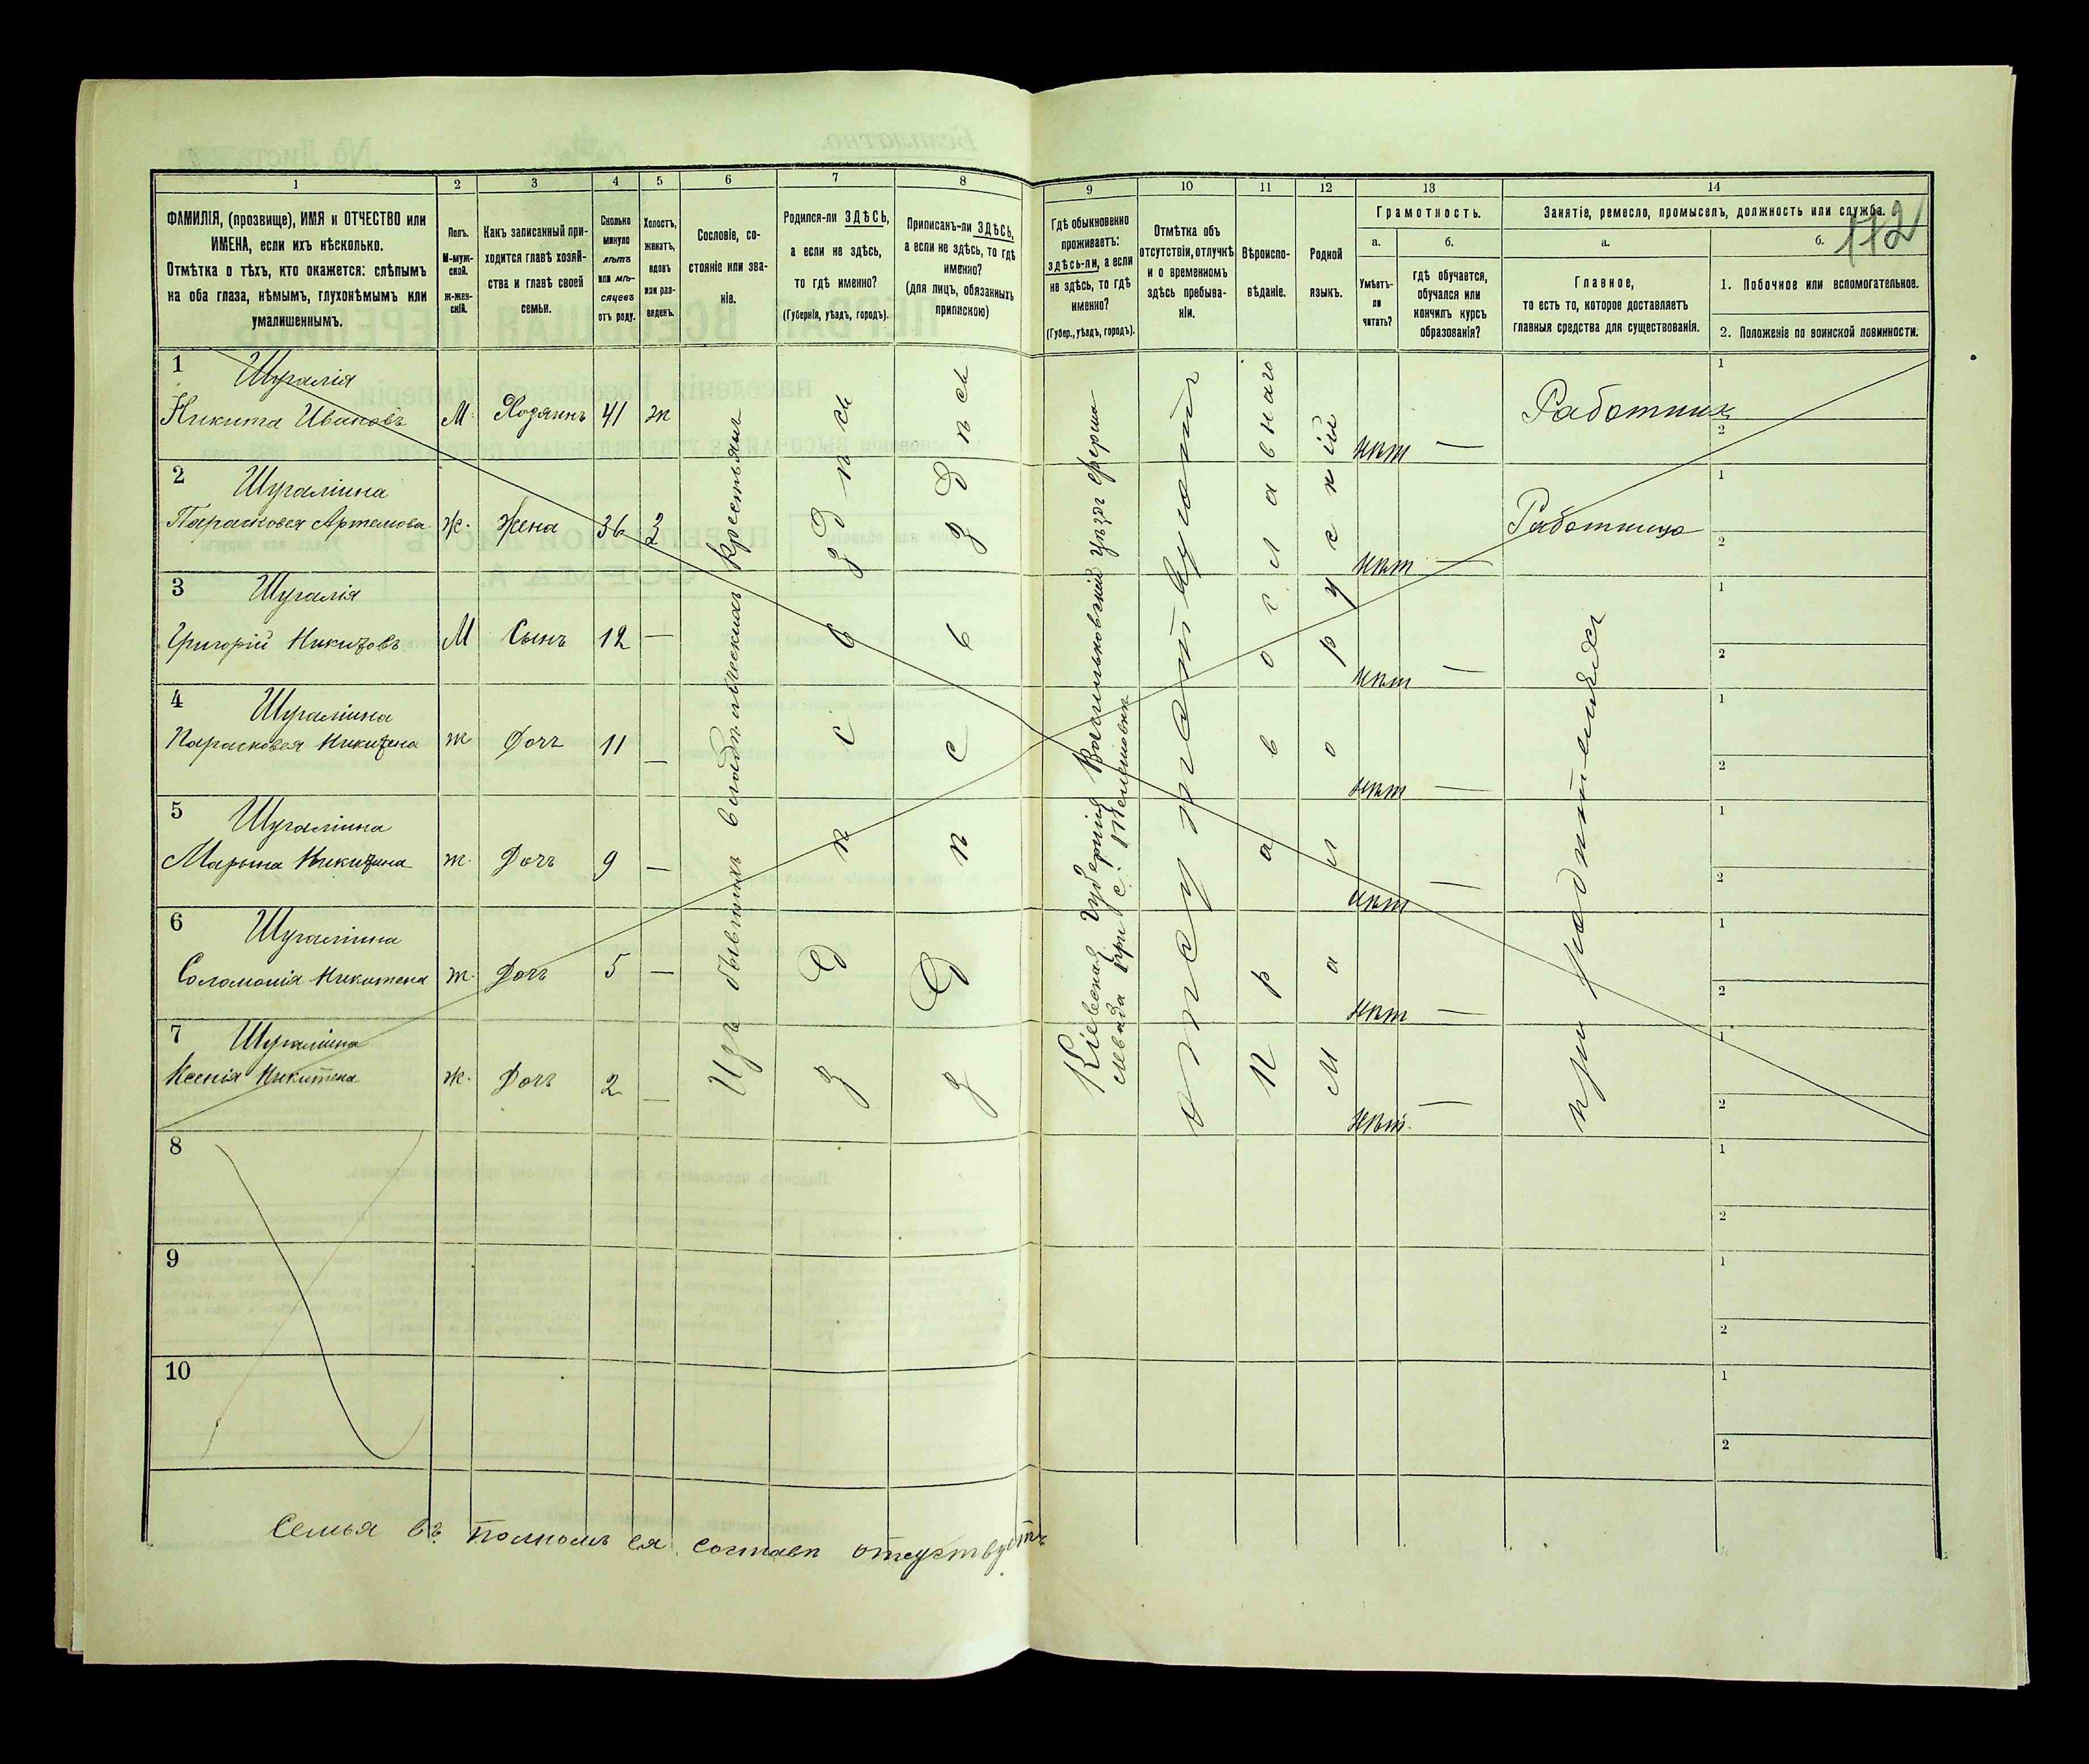 1 2 3 4 5 6 7 8 9 10 11 12 13 14
ФАМИЛІЯ, (прозвище), ИМЯ и ОТЧЕСТВО или
ИМЕНА, если ихъ нѣсколько.
Отмѣтка о тѣхъ, кто окажется: слѣпымъ
на оба глаза, нѣмымъ, глухонѣмымъ или
умалишеннымъ.
Полъ.
М-муж-
ской.
ж-жен-
скій.
Какъ записанный при-
ходится главѣ хозяй-
ства и главѣ своей
семьи.
Сколько
минуло
лѣтъ
или мѣ-
сяцевъ
отъ роду.
Холостъ,
женатъ,
вдовъ
или раз-
веденъ.
Сословіе, со-
стояніе или зва-
ніе.
Родился-ли ЗДѢСЬ,
а если не здѣсь,
то гдѣ именно?
(Губернія, уѣздъ, городъ).
Приписанъ-ли ЗДѢСЬ,
а если не здѣсь, то гдѣ
именно?
(для лицъ, обязанныхъ
припискою)
Гдѣ обыкновенно
проживаетъ:
здѣсь-ли, а если
не здѣсь, то гдѣ
именно?
(Губер., уѣздъ, городъ).
Отмѣтка объ
отсутствіи, отлучкѣ
и о временномъ
здѣсь пребыва-
ніи.
Вѣроиспо-
вѣданіе.
Родной
языкъ.
Грамотность.
а.
Умѣетъ-
ли
читать?
б.
гдѣ обучается,
обучался или
кончилъ курсъ
образованія?
Занятіе, ремесло, промыселъ, должность или служба.
112
а.
Главное,
то есть то, которое доставляетъ
главныя средства для существованія.
б.
1. Побочное или вспомогательное.
2. Положеніе по воинской повинности.
1 Шугалія
Никита Ивановъ М. Хозяинъ 41 ж нѣт — Работник 1 2
2 Шугаліина
Парасковея Артемова Ж. Жена 36 З нѣт — Работница 1 2
3 Шугалія
Григорій Никитовъ М Сынъ 12 — нѣт — 1 2
4 Шугаліина
Парасковея Никитена ж Доч 11 — нѣт — 1 2
5 Шугаліина
Марына Никитина ж. Доч 9 — нѣт — 1 2
6 Шугаліина
Соломонія Никитена ж. Доч 5 — нѣт — 1 2
7 Шугаліина
Ксенія Никитена ж. Доч 2 — нѣт. — 1 2
Изъ бывшихъ владѣльческихъ крестьянъ
здѣсь
здѣсь
Кіевская Губернія Васильковскій Уѣздъ ферма
при с.
отсутствующий
Православнаго
Малорускій
при родителях
8 1 2
9 1 2
10 1 2
Семья въ полномъ ея составѣ отсутствуетъ